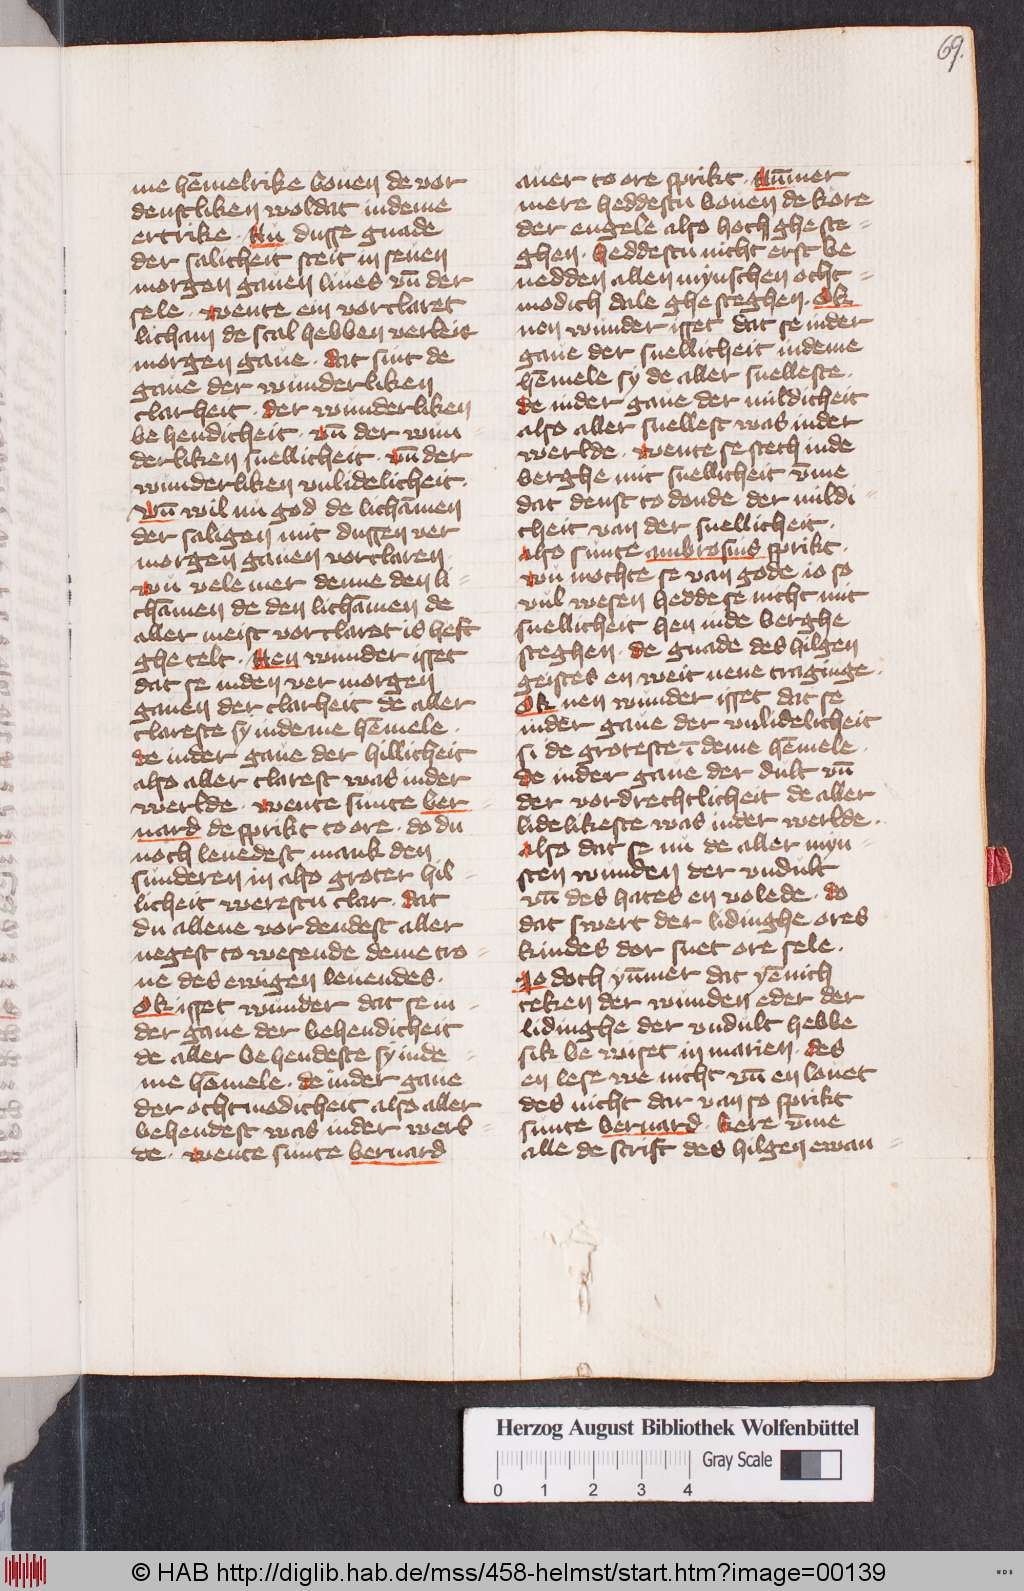 69.
me hēmelrike bouen de vor
denstliken woldat indeme
ertrike. Nu dusse gnade
der salicheit steit in seuen
morgen gauen liues vn̄ der
sele. wente ein vorclaret
licham de scal hebben verleie
morgen gaue. dat sint de
gaue der wunderliken
clarheit. der wunderliken
behendicheit. vn̄ der wun
derliken snellicheit. vn̄ der
wunderliken vnlidelicheit.
vn̄ wil nu god de lichāmen
der saligen mit dussen ver
morgen gauen vorclaren.
wu vele mer denne den li=
chāmen de den lichāmen de
aller meist vorclaret is heft
ghe telt. Nen wunder isset
dat se inden ver morgen
gauen der clarheit de aller
clareste sy indeme hēmele.
de inder gaue der hillicheit
also aller clarest was inder
werlde. wente sunte ber=
nard de sprikt to ore. do du
noch leuedest mank den
sunderen in also groter hil=
licheit werestu clar. dat
du allene vordendest aller
negest to wesende deme tro=
ne des ewigen leuendes.
Ok isset wunder dat se in=
der gaue der behendicheit
de aller behendeste sy inde=
me hēmele. de inder gaue
der othmodicheit also aller
behendest was inder werl=
de. wente sunte bernard
auer to ore sprikt. Nūmer
mere heddestu bouen de kore
der engele also hoch ghe ste=
ghen. Heddestu nicht erst be
nedden allen mynschen otht=
modich dale ghe steghen. Ok
nen wunder isset dat se inder
gaue der snellicheit indeme
hēmele sy de aller snelleste.
de inder gaue der mildicheit
also aller snellest was inder
werlde. wente se stech inde
berghe mit snellicheit vm̄e
dat denst to donde der mildi=
cheit van der snellicheit.
also sunte ambrosius sprikt.
wu mochte se van gode io so
vul wesen hedde se nicht mit
snellicheit hen inde berghe
steghen. de gnade des hilgen
geistes en weit nene traginge.
Ok nen wunder isset dat se
inder gaue der vnlidelicheit
si de groteste ī deme hēmele.
de inder gaue der dult vn̄
der vordrechtlicheit de aller
lidelikeste was inder werlde.
also dat se nu de aller myn=
sten wunden der vndult
vn̄ des hates en volede. do
dat swert der lidinghe ores
kindes dor snet ore sele.
Jo doch yūmer dat yēnich
teken der wunden eder der
lidinghe der vndult hebbe
sik be wiset in marien. des
en lese we nicht vn̄ en louet
des nicht dar van so sprikt
sunte bernard. kere vm̄e
alle de scrift des hilgen ewan=
Herzog August Bibliothek Wolfenbüttel
Gray Scale
0 1 2 3 4
© HAB http://diglib.hab.de/mss/458-helmst/start.htm?image=00139